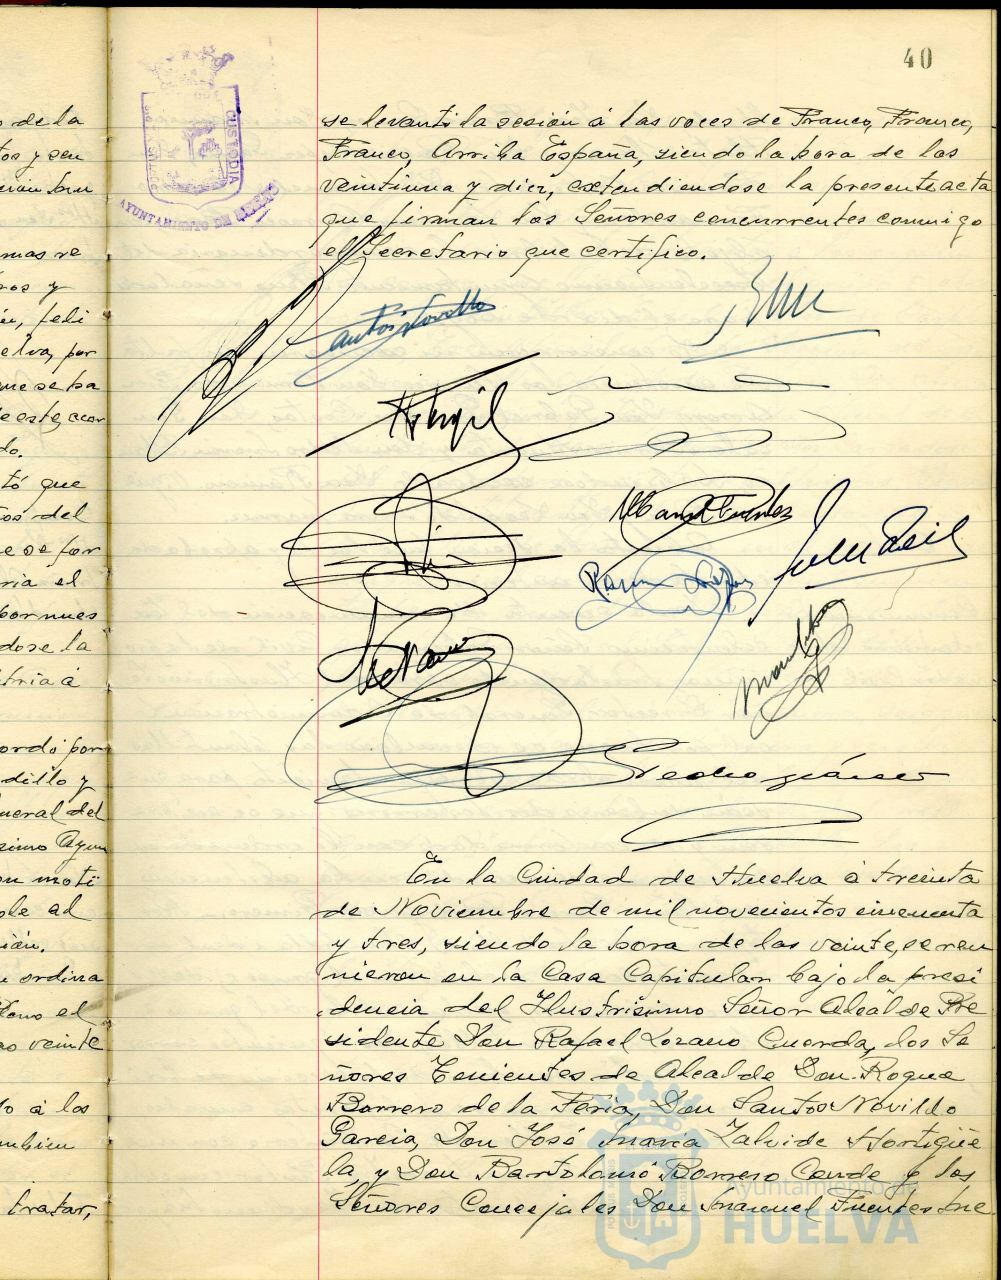 40
PORTUS MARIS
CUSTODIA
AYUNTAMIENTO DE HUELVA
o de la
tos y seu
mas re
ros y
feli
elva, por
que se ha
e este acor
do.
tó que
os del
e se for
ria el
por nues
dose la
tria á
ordó por
dillo y
neral del
simo Ayun
on moti
ble al
ión.
ordina
Pleno el
veinte
o á los
mbien
tratar,
se levantó la sesión á las voces de Franco, Franco,
Franco, Arriba España, siendo la hora de las
veintiuna y diez, extendiendose la presente acta
que firman los Señores concurrentes conmigo
el Secretario que certifico.
Santos Novillo
Ml Fuentes
Ramon Lopez
Pedro
En la Ciudad de Huelva á treinta
de Noviembre de mil novecientos cincuenta
y tres, siendo la hora de las veinte, se reu
nieron en la Casa Capitular bajo la presi
dencia del Ilustrisimo Señor Alcalde Pre
sidente Don Rafael Lozano Cuerda, los Se
ñores Tenientes de Alcalde Don Roque
Borrero de la Feria, Don Santos Novillo
Garcia, Don José Maria Zalvide Hortigüe
la, y Don Bartolomé Borrero Conde y los
Señores Concejales Don Manuel Fuentes Me
Ayuntamiento de
HUELVA